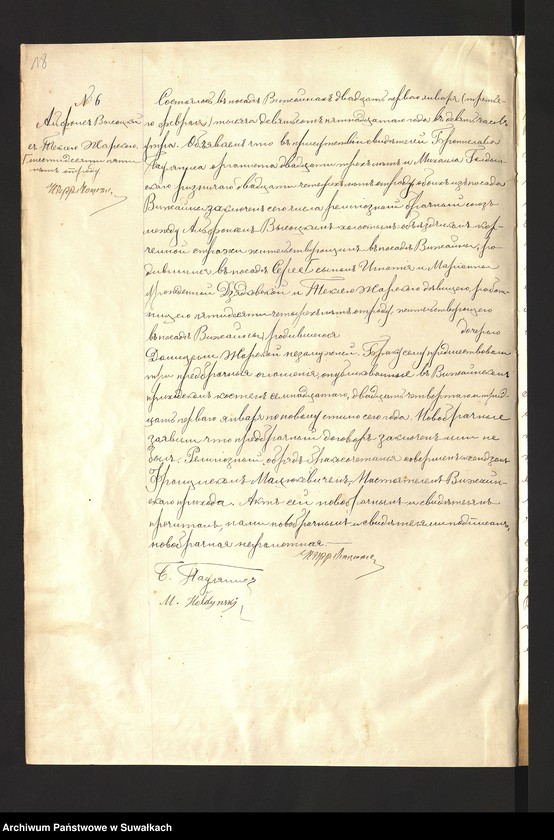 18
№ 6
Альфонсъ Высоцкій
съ Теклею Жарскою.
Состоялось въ посадѣ Вижайнахъ двадцать перваго января (третья-
го февраля) тысяча девятьсотъ пятнадцатаго года въ девять часовъ
утра. Объявляемъ что въ присутствіи свидѣтелей Бронислава
Паулянца органиста двадцати трехъ лѣтъ и Михаила
двадцати четырехъ лѣтъ отъ роду обоихъ изъ посада
Вижайны, заключенъ сего числа религіозный брачный союзъ
между Альфонсомъ Высоцкимъ холостымъ объѣздчикомъ корчемной
стражи жительствующимъ въ посадѣ Вижайны, ро-
дившимся въ посадѣ Серее сыномъ Игнатія и Маріанны
урожденной и Теклею Жарскою дѣвицею,
пятидесяти четырехъ лѣтъ отъ роду жительствующею
въ посадѣ Вижайны, родившеюся дочерью
Жарской незамужней. Браку сему предшествовали
три предбрачныя оглашенія, опубликованныя въ Вижайнскомъ
приходскомъ костелѣ семнадцатаго, двадцать четвертаго и трид-
цать перваго января по новому стилю сего года. Новобрачные
заявили что предбрачный договоръ заключенъ ими не
былъ. Религіозный обрядъ бракосочетанія совершенъ ксендзомъ
Францискомъ Настоятелемъ Вижайн-
скаго прихода. Актъ сей новобрачнымъ и свидѣтелямъ
прочитанъ, нами новобрачнымъ и свидѣтелями подписанъ,
новобрачная неграмотная.
Б. Паулянисъ
M. Hołdyński
Archiwum Państwowe w Suwałkach